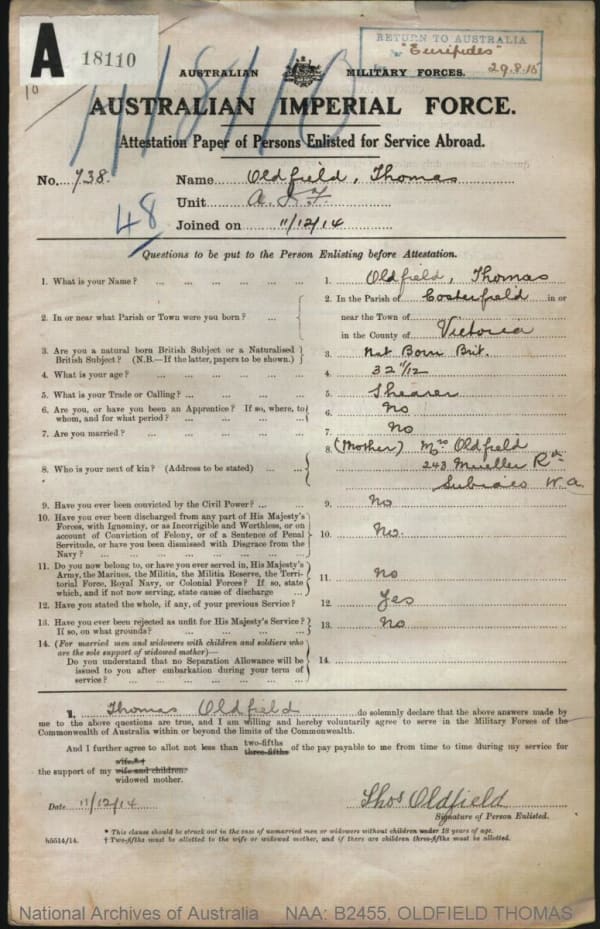 A 18110
RETURN TO AUSTRALIA
"Euripides"
29.8.15
10
18110
AUSTRALIAN MILITARY FORCES.
AUSTRALIAN IMPERIAL FORCE.
Attestation Paper of Persons Enlisted for Service Abroad.
No. 738. Name Oldfield, Thomas
Unit A.I.F.
48 Joined on 11/12/14
Questions to be put to the Person Enlisting before Attestation.
1. What is your Name? ... 1. Oldfield, Thomas
2. In or near what Parish or Town were you born? ... 2. In the Parish of Costerfield in or
near the Town of
in the County of Victoria
3. Are you a natural born British Subject or a Naturalised
British Subject? (N.B.—If the latter, papers to be shown.) 3. Nat Born Brit.
4. What is your age? ... 4. 32 11/12
5. What is your Trade or Calling? ... 5. Shearer
6. Are you, or have you been an Apprentice? If so, where, to
whom, and for what period? ... 6. No
7. Are you married? ... 7. No
8. Who is your next of kin? (Address to be stated) ... 8. (Mother) Mrs Oldfield
243 Mueller Rd
Subiaco W.A.
9. Have you ever been convicted by the Civil Power? ... 9. No
10. Have you ever been discharged from any part of His Majesty's
Forces, with Ignominy, or as Incorrigible and Worthless, or on
account of Conviction of Felony, or of a Sentence of Penal
Servitude, or have you been dismissed with Disgrace from the
Navy? ... 10. No.
11. Do you now belong to, or have you ever served in, His Majesty's
Army, the Marines, the Militia, the Militia Reserve, the Terri-
torial Force, Royal Navy, or Colonial Forces? If so, state
which, and if not now serving, state cause of discharge ... 11. no
12. Have you stated the whole, if any, of your previous Service? 12. Yes
13. Have you ever been rejected as unfit for His Majesty's Service?
If so, on what grounds? ... 13. No
14. (For married men and widowers with children and soldiers who
are the sole support of widowed mother)—
Do you understand that no Separation Allowance will be
issued to you after embarkation during your term of
service? ... 14.
I, Thomas Oldfield do solemnly declare that the above answers made by
me to the above questions are true, and I am willing and hereby voluntarily agree to serve in the Military Forces of the
Commonwealth of Australia within or beyond the limits of the Commonwealth.
And I further agree to allot not less than two-fifths three-fifths of the pay payable to me from time to time during my service for
the support of my wife*† wife and children† widowed mother.
Date 11/12/14 Thos Oldfield
Signature of Person Enlisted.
* This clause should be struck out in the case of unmarried men or widowers without children under 18 years of age.
h5514/14. † Two-fifths must be allotted to the wife or widowed mother, and if there are children three-fifths must be allotted.
National Archives of Australia NAA: B2455, OLDFIELD THOMAS